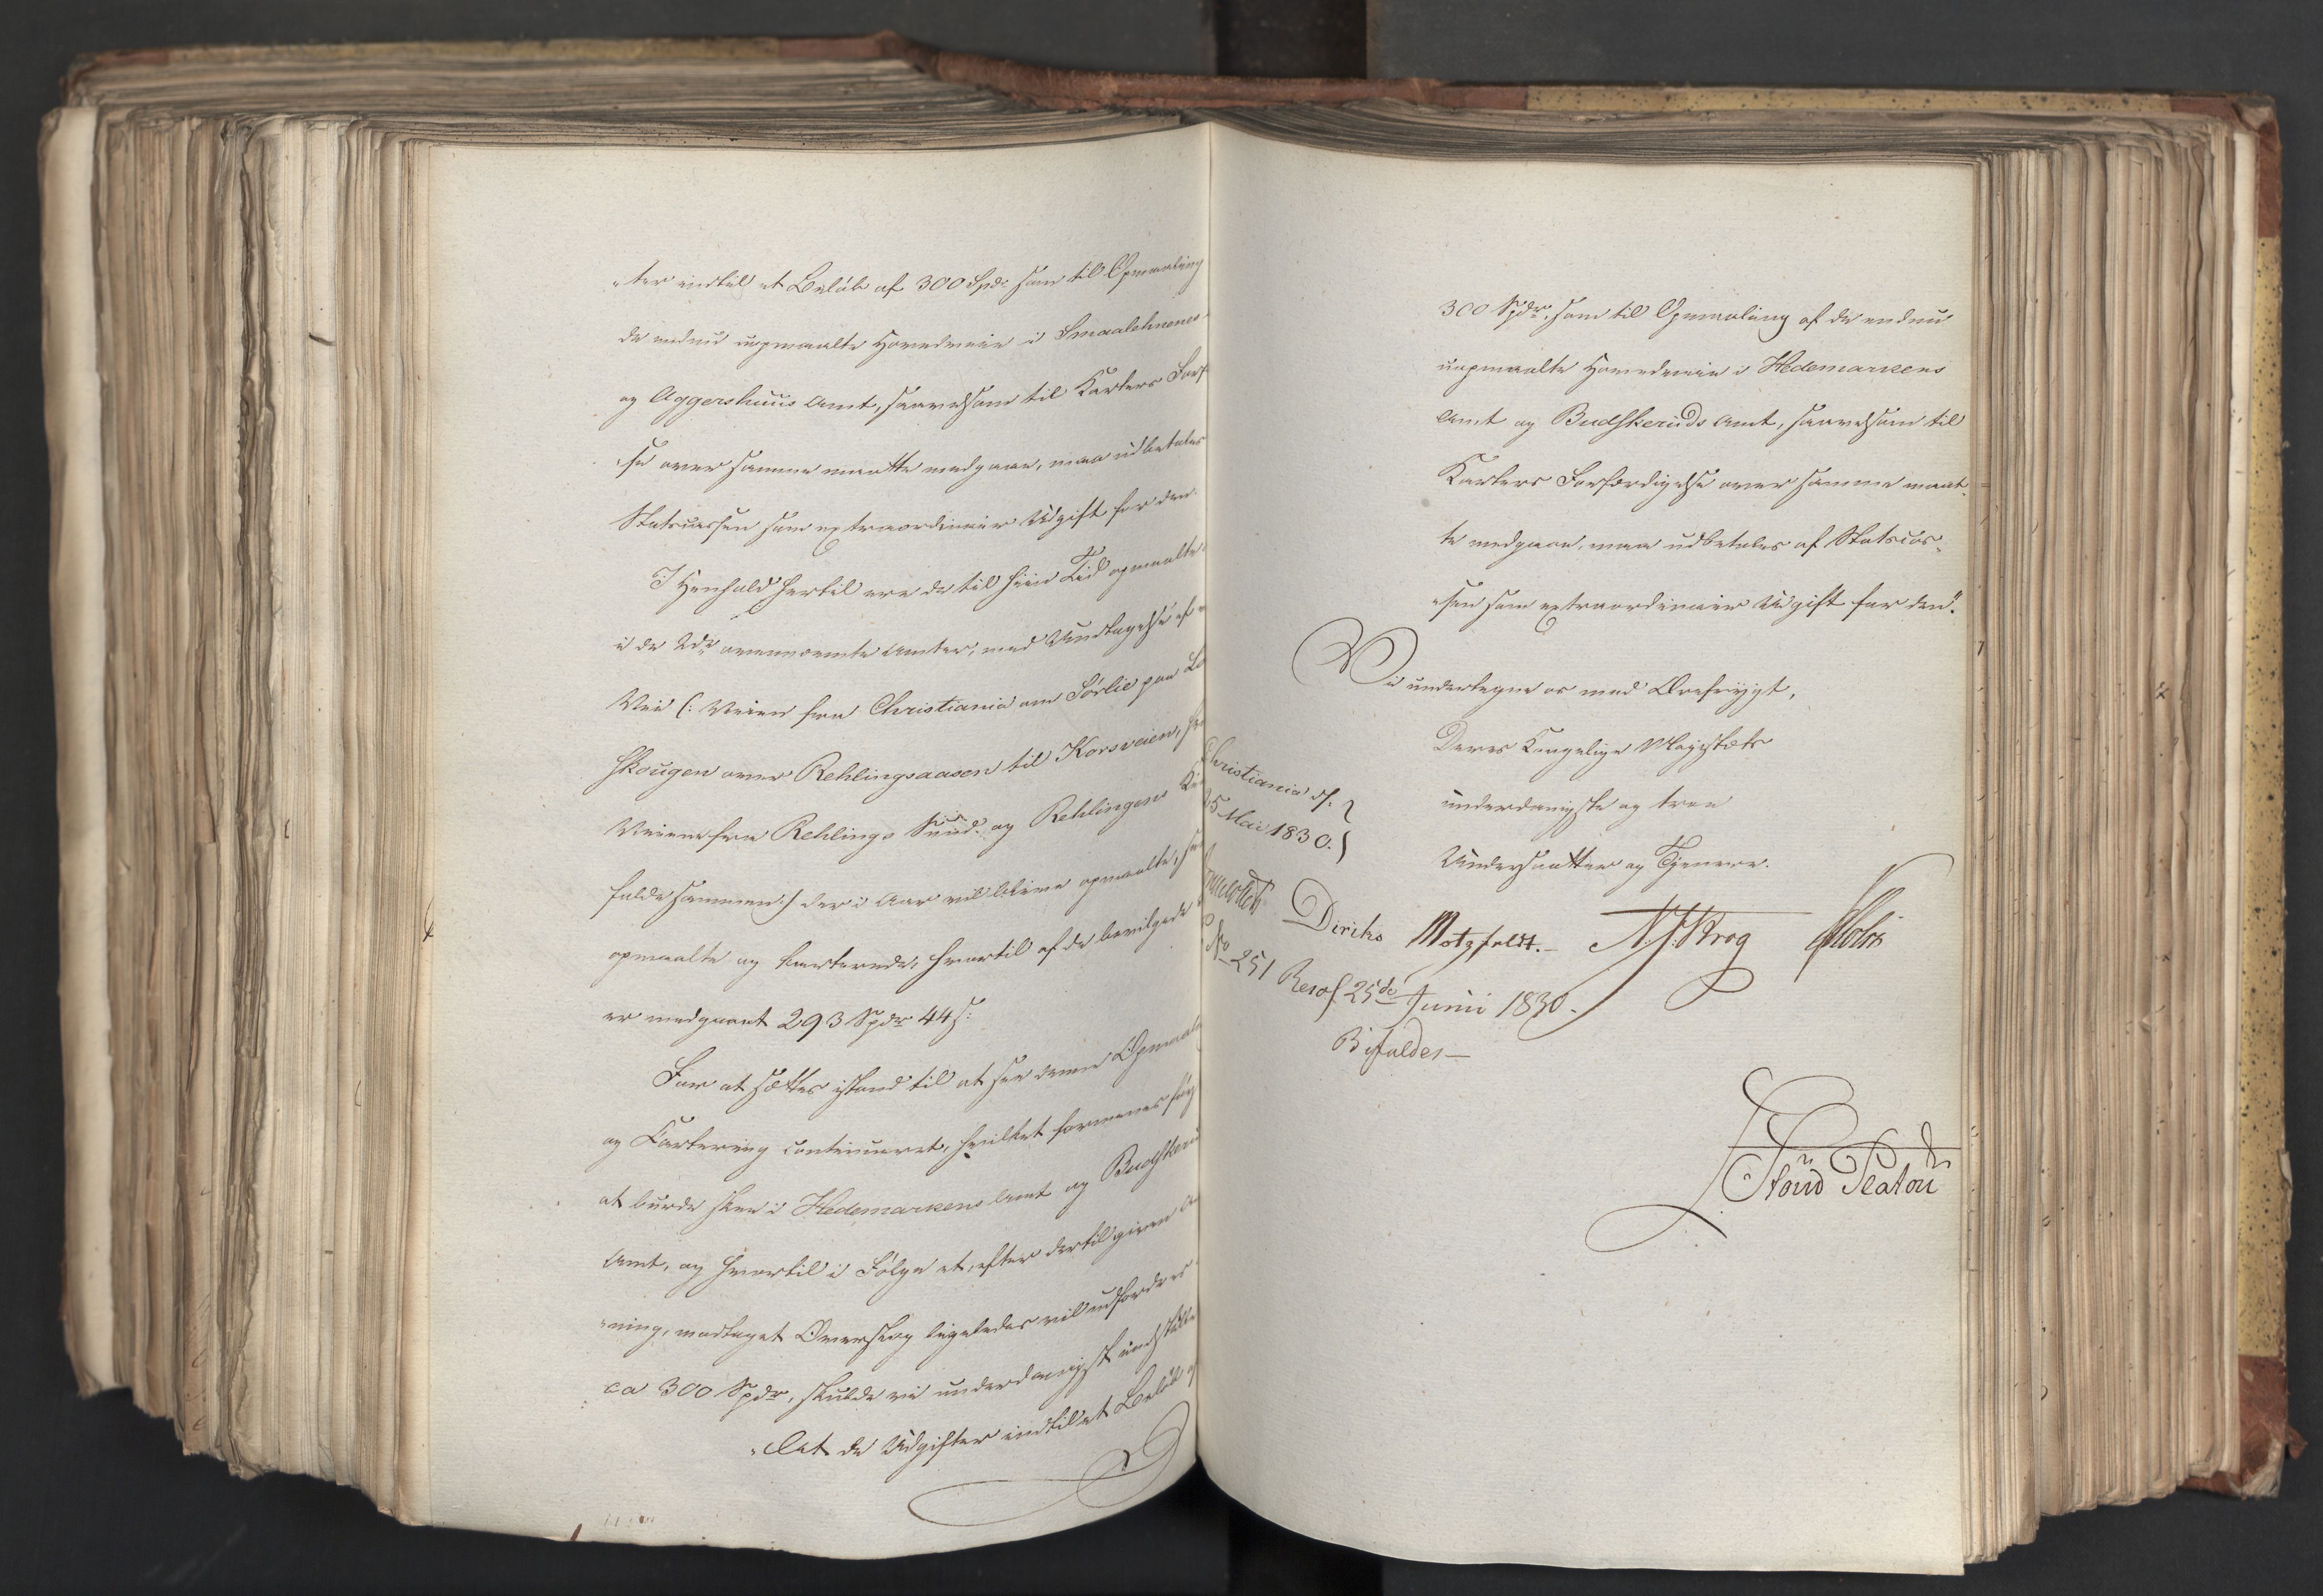 "ter indtil et Beløb af 300 Spd: som til Opmaaling
de endnu uopmaalte Hovedveie i Smaalehnenes
og Aggershuus Amt, saavelsom til Karters Forf
"se over samme maatte medgaae, maa udbetales
Statscassen som extraordinair Udgift for den.
I Henhold hertil ere de til hiin Tid opmaalte
i de 2de ovennævnte Amter, med Undtagelse af
Vei (: Veien fra Christiania om Sørlie paa
Skougen over Rehlingsaasen til Korsveien,
Veiene fra Rehlings Sund: og Rehlingens
falde sammen :/ der i Aar vil blive opmaalte,
opmaalte og karterede, hvortil af de bevilgede
er medgaaet 293 Spdr 44 s:
For at sættes istand til at see denne Opmaal
og Kartering continueret, hvilket formenes
at burde skee i Hedemarkens Amt og Budskeru
Amt, og hvortil i Følge et, efter dertil given
"ning, modtaget Overslag ligeledes vil udfordres
ca 300 Spdr, skulde vi underdanigst indstille
"At de Udgifter indtil et Beløb af
300 Spdr, som til Opmaaling af de endnu
uopmaalte Hovedveie i Hedemarkens
Amt og Budskeruds Amt, saavelsom til
Karters Forfærdigelse over samme maat-
te medgaae, maa udbetales af Statscas-
"sen som extraordinair Udgift for den".
Vi undertegne os med Ærefrygt,
Deres Kongelige Majestæts
underdanigste og troe
Undersaatter og Tjenere.
Christiania d.
25 Mai 1830.
Diriks Motzfeldt. N. J. Krog Holst
No 251 Resol. 25de Junii 1830.
Bifaldes